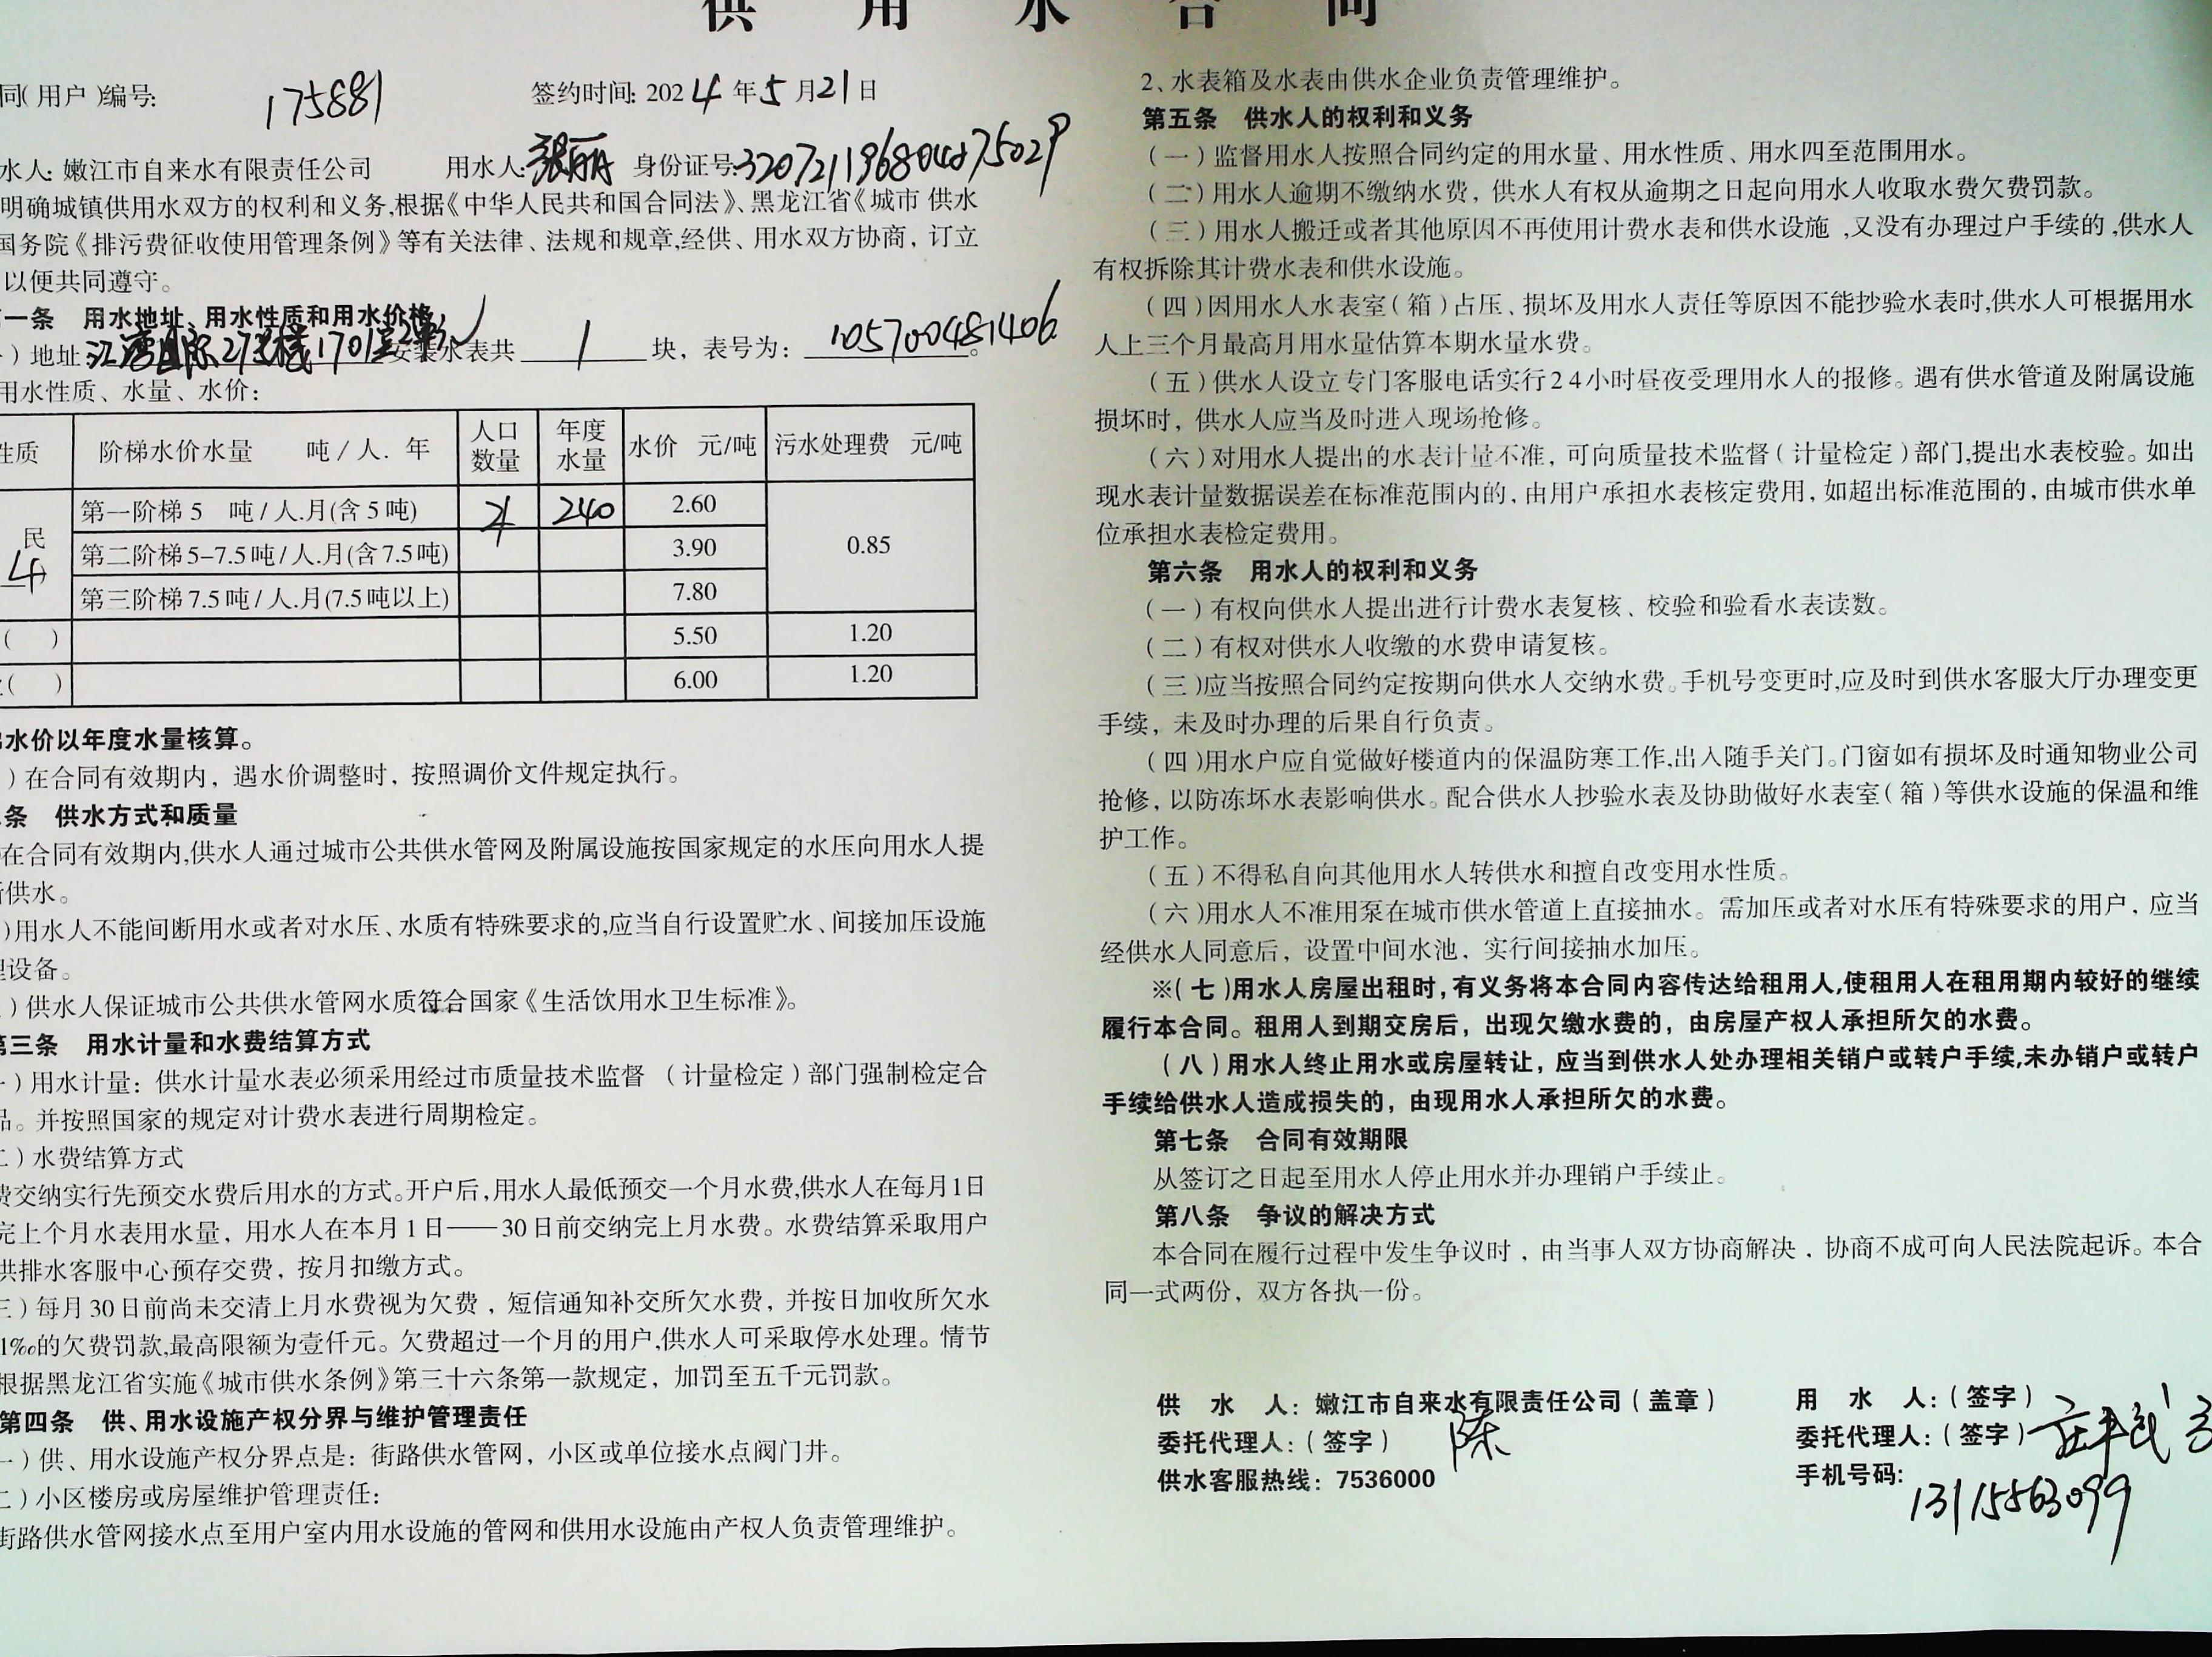 供 用 水 合 同
同(用户)编号: 175881 签约时间: 2024年5月21日
水人: 嫩江市自来水有限责任公司 用水人: 张丽 身份证号:
明确城镇供用水双方的权利和义务,根据《中华人民共和国合同法》、黑龙江省《城市 供水
国务院《排污费征收使用管理条例》等有关法律、法规和规章,经供、用水双方协商，订立
以便共同遵守。
一条 用水地址、用水性质和用水价格
)地址: 江湾国际27号楼1701室2单元 安装水表共 1 块，表号为: 105700481406。
用水性质、水量、水价：
性质 阶梯水价水量 吨/人. 年 人口数量 年度水量 水价 元/吨 污水处理费 元/吨
民 第一阶梯 5 吨/人.月(含5吨) 240 2.60 0.85
4 第二阶梯 5-7.5吨/人.月(含7.5吨) 3.90
第三阶梯 7.5吨/人.月(7.5吨以上) 7.80
( ) 5.50 1.20
( ) 6.00 1.20
水价以年度水量核算。
)在合同有效期内，遇水价调整时，按照调价文件规定执行。
条 供水方式和质量
在合同有效期内,供水人通过城市公共供水管网及附属设施按国家规定的水压向用水人提
供水。
)用水人不能间断用水或者对水压、水质有特殊要求的,应当自行设置贮水、间接加压设施
设备。
)供水人保证城市公共供水管网水质符合国家《生活饮用水卫生标准》。
第三条 用水计量和水费结算方式
)用水计量：供水计量水表必须采用经过市质量技术监督 (计量检定)部门强制检定合
品。并按照国家的规定对计费水表进行周期检定。
二)水费结算方式
费交纳实行先预交水费后用水的方式。开户后,用水人最低预交一个月水费,供水人在每月1日
完上个月水表用水量，用水人在本月1日——30日前交纳完上月水费。水费结算采取用户
供排水客服中心预存交费，按月扣缴方式。
三)每月30日前尚未交清上月水费视为欠费，短信通知补交所欠水费，并按日加收所欠水
1‰的欠费罚款,最高限额为壹仟元。欠费超过一个月的用户,供水人可采取停水处理。情节
根据黑龙江省实施《城市供水条例》第三十六条第一款规定，加罚至五千元罚款。
第四条 供、用水设施产权分界与维护管理责任
一)供、用水设施产权分界点是：街路供水管网，小区或单位接水点阀门井。
二)小区楼房或房屋维护管理责任：
街路供水管网接水点至用户室内用水设施的管网和供用水设施由产权人负责管理维护。
2、水表箱及水表由供水企业负责管理维护。
第五条 供水人的权利和义务
(一)监督用水人按照合同约定的用水量、用水性质、用水四至范围用水。
(二)用水人逾期不缴纳水费，供水人有权从逾期之日起向用水人收取水费欠费罚款。
(三)用水人搬迁或者其他原因不再使用计费水表和供水设施 ,又没有办理过户手续的,供水人
有权拆除其计费水表和供水设施。
(四)因用水人水表室(箱)占压、损坏及用水人责任等原因不能抄验水表时,供水人可根据用水
人上三个月最高月用水量估算本期水量水费。
(五)供水人设立专门客服电话实行24小时昼夜受理用水人的报修。遇有供水管道及附属设施
损坏时，供水人应当及时进入现场抢修。
(六)对用水人提出的水表计量不准，可向质量技术监督(计量检定)部门,提出水表校验。如出
现水表计量数据误差在标准范围内的，由用户承担水表核定费用，如超出标准范围的，由城市供水单
位承担水表检定费用。
第六条 用水人的权利和义务
(一)有权向供水人提出进行计费水表复核、校验和验看水表读数。
(二)有权对供水人收缴的水费申请复核。
(三)应当按照合同约定按期向供水人交纳水费。手机号变更时,应及时到供水客服大厅办理变更
手续，未及时办理的后果自行负责。
(四)用水户应自觉做好楼道内的保温防寒工作,出入随手关门。门窗如有损坏及时通知物业公司
抢修，以防冻坏水表影响供水。配合供水人抄验水表及协助做好水表室(箱)等供水设施的保温和维
护工作。
(五)不得私自向其他用水人转供水和擅自改变用水性质。
(六)用水人不准用泵在城市供水管道上直接抽水。需加压或者对水压有特殊要求的用户，应当
经供水人同意后，设置中间水池，实行间接抽水加压。
※(七)用水人房屋出租时,有义务将本合同内容传达给租用人,使租用人在租用期内较好的继续
履行本合同。租用人到期交房后，出现欠缴水费的，由房屋产权人承担所欠的水费。
(八)用水人终止用水或房屋转让，应当到供水人处办理相关销户或转户手续,未办销户或转户
手续给供水人造成损失的，由现用水人承担所欠的水费。
第七条 合同有效期限
从签订之日起至用水人停止用水并办理销户手续止。
第八条 争议的解决方式
本合同在履行过程中发生争议时，由当事人双方协商解决，协商不成可向人民法院起诉。本合
同一式两份，双方各执一份。
供 水 人：嫩江市自来水有限责任公司(盖章) 用 水 人：(签字)
委托代理人：(签字) 陈 委托代理人：(签字)
供水客服热线：7536000 手机号码: 13115563099